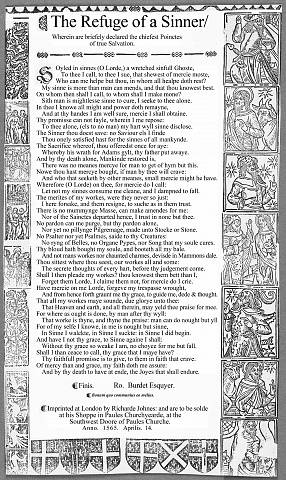 ¶The Refuge of a Sinner/
Wherein are briefely declared the chiefest Poinctes
of true Salvation.
Soyled in sinnes (O Lorde,) a wretched sinfull Ghoste,
To thee I call, to thee I sue, that shewest of mercie moste,
Who can me helpe but thou, in whom all healpe doth rest?
My sinne is more than man can mends, and that thou knowest best.
On whom then shall I call, to whom shall I make mone?
Sith man is mightlesse sinne to cure, I seeke to thee alone.
In thee I knowe all might and power doth remayne,
And at thy handes I am well sure, mercie I shall obtaine.
Thy promise can not fayle, wherein I me repose:
To thee alone, (els to no man) my hart wyll sinne disclose.
The Sinner thou doest save: no Saviour els I finde
Thou onely satisfied hast for the sinnes of all mankynde.
The Sacrifice whereof, thou offredst once for aye:
Whereby his wrath for Adams gylt, thy father put awaye.
And by thy death alone, Mankinde restord is:
There was no meanes mercye for man to get of hym but this.
Nowe thou hast mercye bought, if man by thee will crave:
And who that seeketh by other meanes, small mercie might he have.
Wherefore (O Lorde) on thee, for mercie do I call:
Let not my sinnes consume me cleane, and I dampned to fall.
The merites of my workes, were they never so just:
I here forsake, and them resigne, to suche as in them trust.
There is no mummynge Masse, can make amendes for me:
Nor of the Sanctes departed hence, I trust in none but thee.
No pardon can me purge, but thy pardon alone:
Nor yet no pillynge Pilgremage, made unto Stocke or Stone.
No Psalter nor yet Psalmes, saide to thy Creatures:
No ryng of Belles, no Organe Pypes, nor Song that my soule cures.
Thy bloud hath bought my soule, and booteth all my bale.
And not mans workes nor chaunted charmes, devisde in Mammons dale.
Thou sittest where thou seest, our workes all and some:
The secrete thoughts of every hart, before thy judgement come.
Shall I then pleade my workes? thou knowest them bett than I,
Forget them Lorde, I claime them not, for mercie do I crie.
Have mercie on me Lorde, forgeve my trespasse wrought,
And from hence forth graunt me thy grace, to guide me, dede & thought.
That all my workes maye sounde, due glorye unto thee:
That Heaven and earth, and all therein, may yeld thee praise for mee.
For where as ought is done, by man after thy wyll:
That worke is thyne, and thyne the praise: man can do nought but yll
For of my selfe I knowe, in me is nought but sinne,
In Sinne I walckte, in Sinne I suckte: in Sinne I did begin.
And have I not thy grace, to Sinne againe I shall;
Without thy grace so weake I am, no choyce for me but fall.
Shall I than ceace to call, thy grace that I maye have?
Thy faithfull promise is to give, to them in faith that crave.
Of mercy than and grace, my faith doth me assure:
And by thy death to have at ende, the Joyes that shall endure.
¶Finis. Ro. Burdet Esquyer.
¶Imprinted at London by Richarde Johnes: and are to be solde
at his Shoppe in Paules Churchyearde, at the
Southwest Doore of Paules Churche.
Anno. 1565. Aprilis. 14.